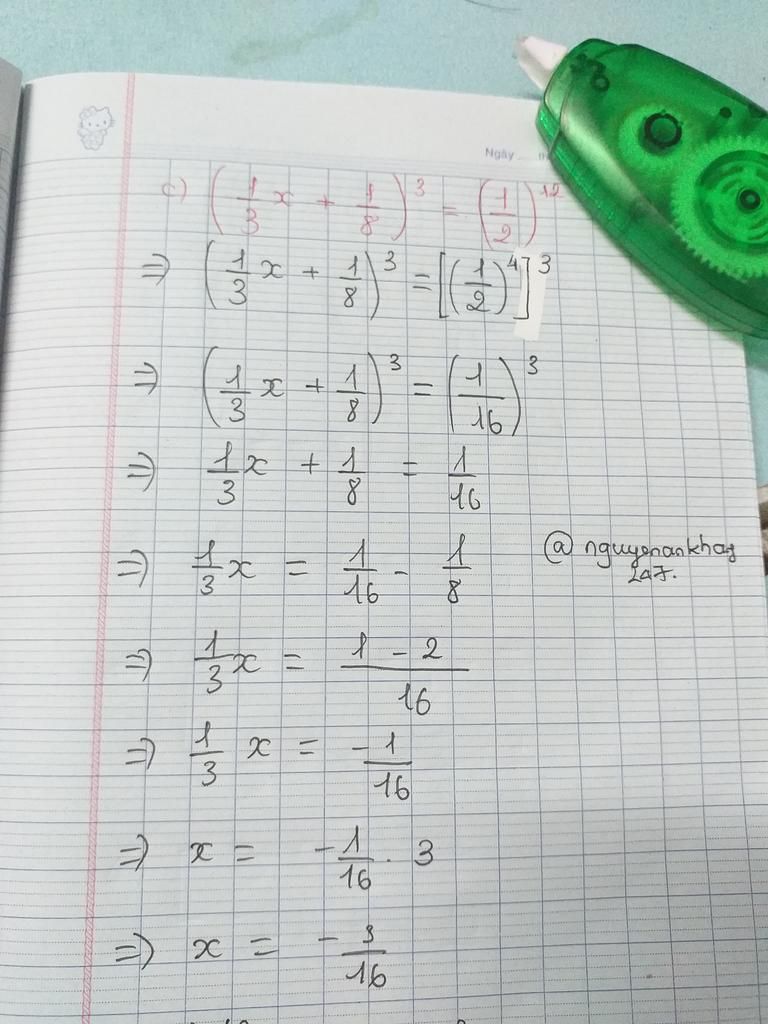 Ngày
c) (1/3 x + 1/8)^3 = (1/2)^12
⇒ (1/3 x + 1/8)^3 = [(1/2)^4]^3
⇒ (1/3 x + 1/8)^3 = (1/16)^3
⇒ 1/3 x + 1/8 = 1/16
⇒ 1/3 x = 1/16 - 1/8
@nguyenankhag
247.
⇒ 1/3 x = (1 - 2)/16
⇒ 1/3 x = -1/16
⇒ x = -1/16 . 3
⇒ x = -3/16